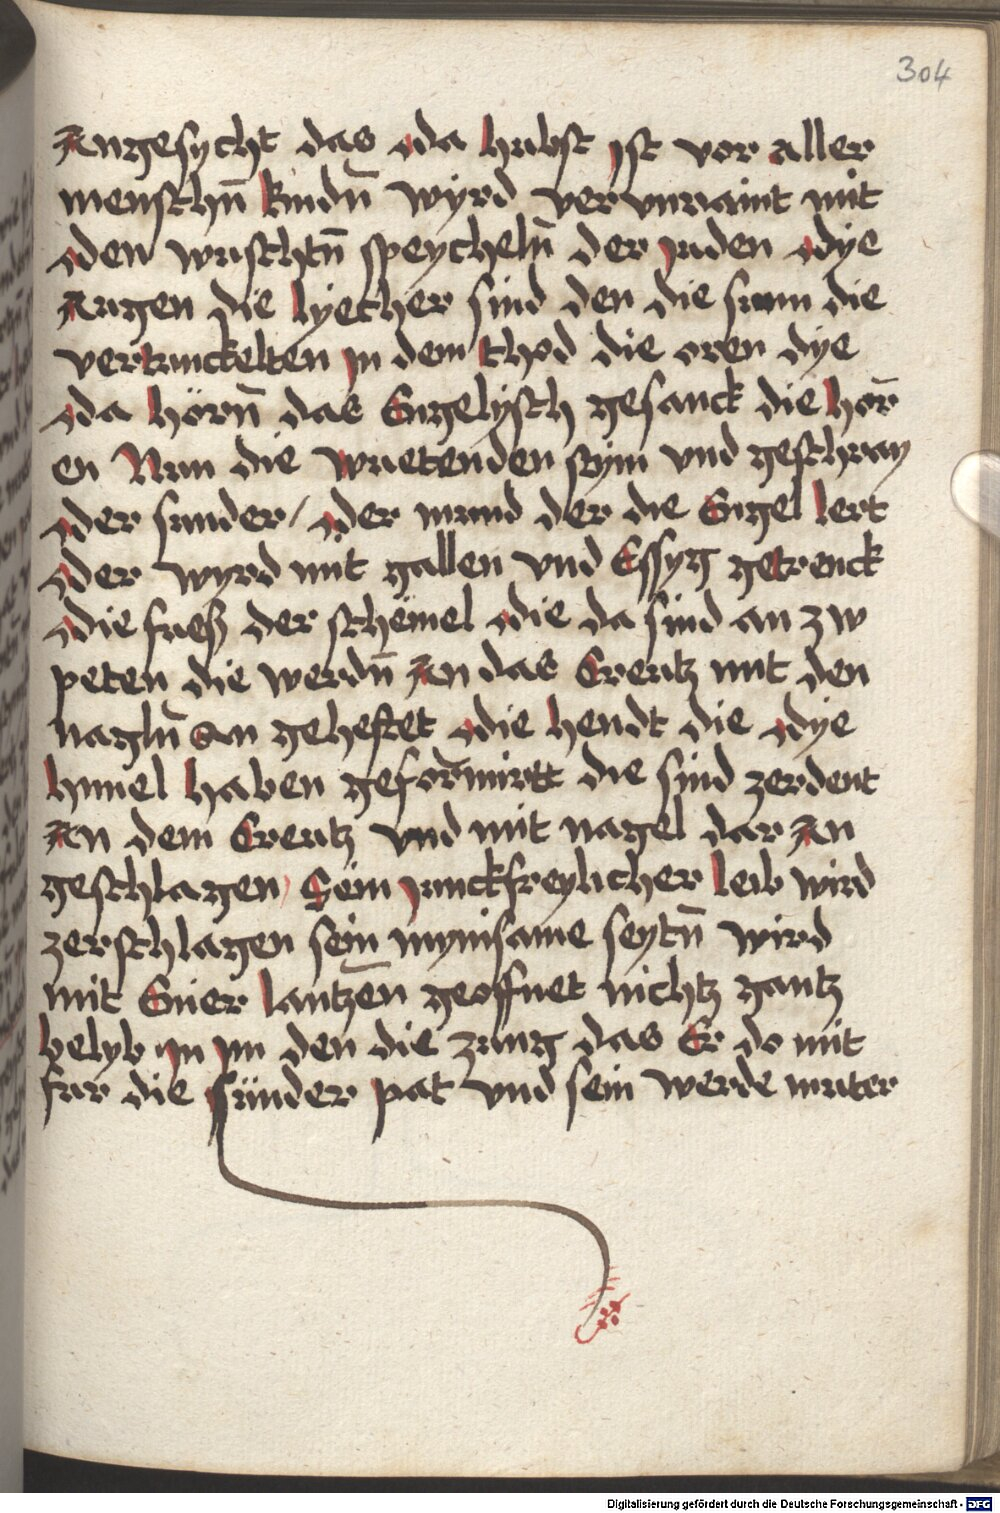 304
Angesycht das da hubst jst vor aller
menschn̄ kindn̄ wyrd ver vnraint mit
den wuschtn̄ speycheln̄ der juden dye
Augen die lyecher sind den die sunn die
vertunckelten jn dem thod die oren dye
da hörn̄ das Engelysch gesanck die hor̄
en Nun die wuetenden stym vnd geschray
der sunder / der mund der die Engel lert
der wyrd mit gallen vnd Essyg getrenck
die fueß der schemel die da sind an zw
peten die werdn̄ An das Creutz mit den
nagln̄ an geheftet die hendt die dye
himel haben geformirtt die sind zerdent
An dem Creutz vnd mit nagel dar An
geschlagen / Sein junckfreylicher leib wird
zerschlagen sein mynisame seytn̄ wird
mit Einer lantzen geoffnet nichtz gantz
belyb jn jm den die zung das Er do mit
fur die sünder pat vnd sein werde muter
Digitalisierung gefördert durch die Deutsche Forschungsgemeinschaft - DFG